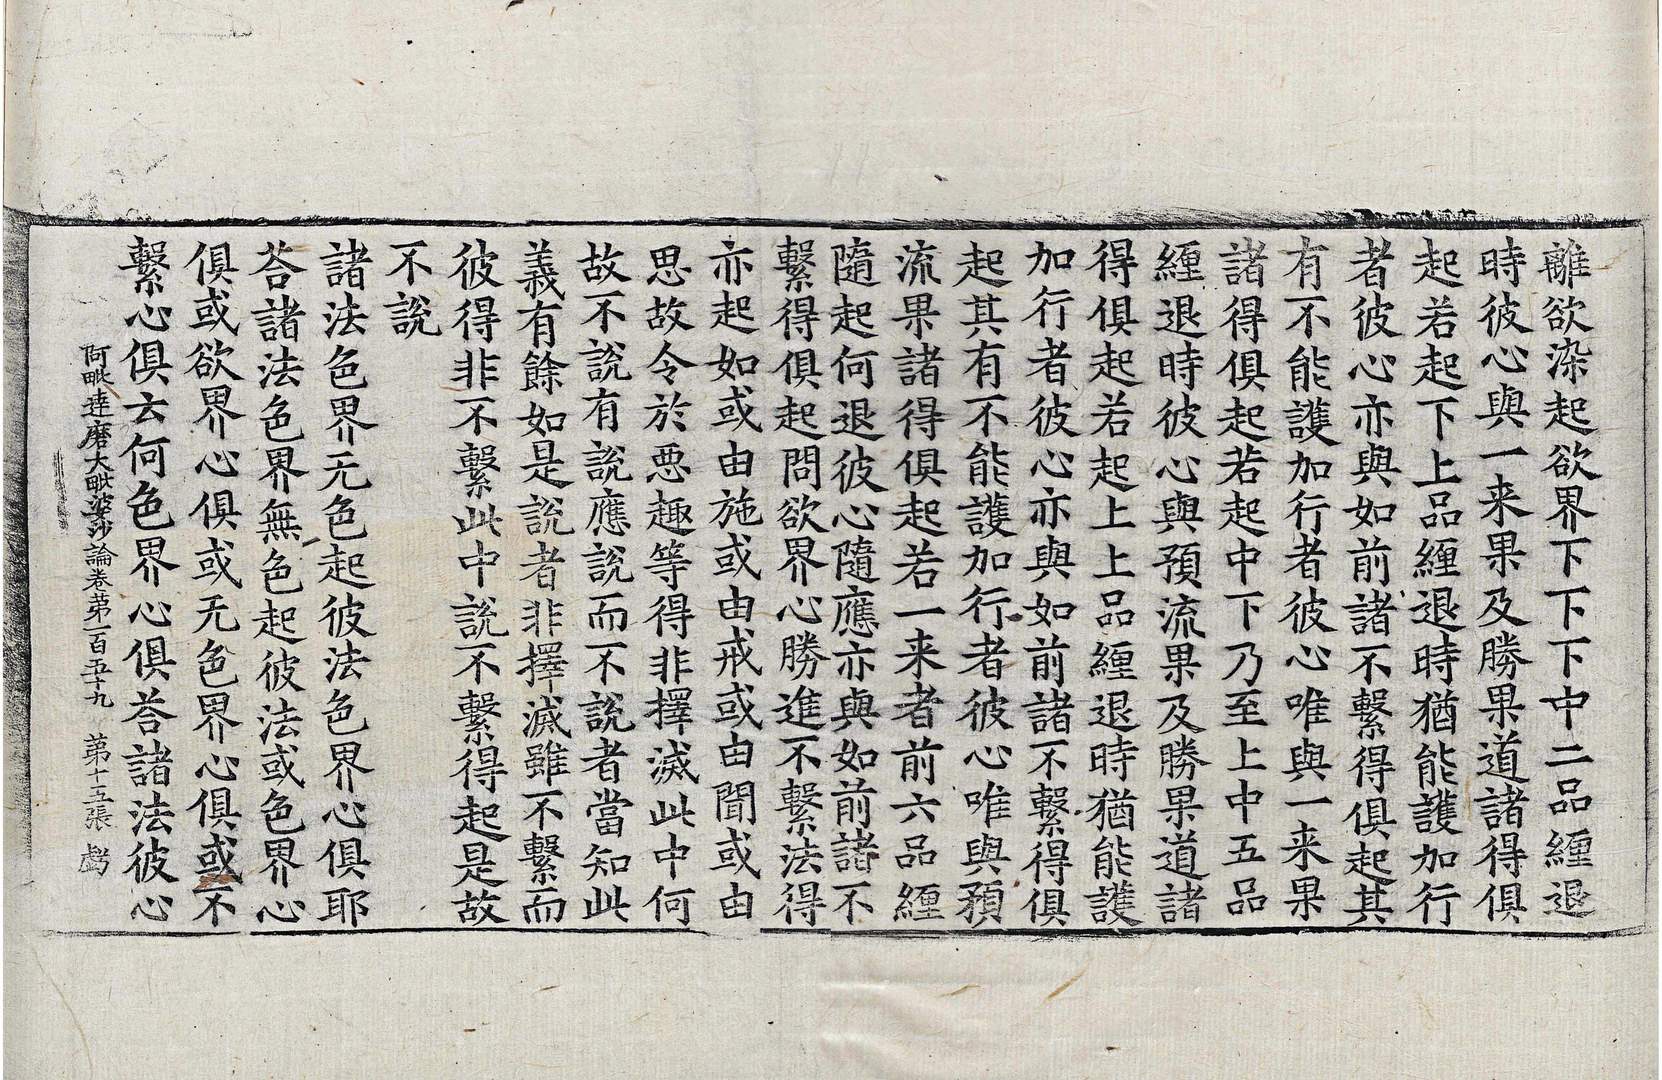 離欲染起欲界下下下中二品纏退
時彼心與一来果及勝果道諸得俱
起若起下上品纏退時猶能護加行
者彼心亦與如前諸不繫得俱起其
有不能護加行者彼心唯與一来果
諸得俱起若起中下乃至上中五品
纏退時彼心與預流果及勝果道諸
得俱起若起上上品纏退時猶能護
加行者彼心亦與如前諸不繫得俱
起其有不能護加行者彼心唯與預
流果諸得俱起若一来者前六品纏
隨起何退彼心隨應亦與如前諸不
繫得俱起問欲界心勝進不繫法得
亦起如或由施或由戒或由聞或由
思故令於惡趣等得非擇滅此中何
故不說有說應說而不說者當知此
義有餘如是說者非擇滅雖不繫而
彼得非不繫此中說不繫得起是故
不說
諸法色界无色起彼法色界心俱耶
荅諸法色界無色起彼法或色界心
俱或欲界心俱或无色界心俱或不
繫心俱云何色界心俱荅諸法彼心
阿毗達磨大毗婆沙論卷第一百五十九 第十五張